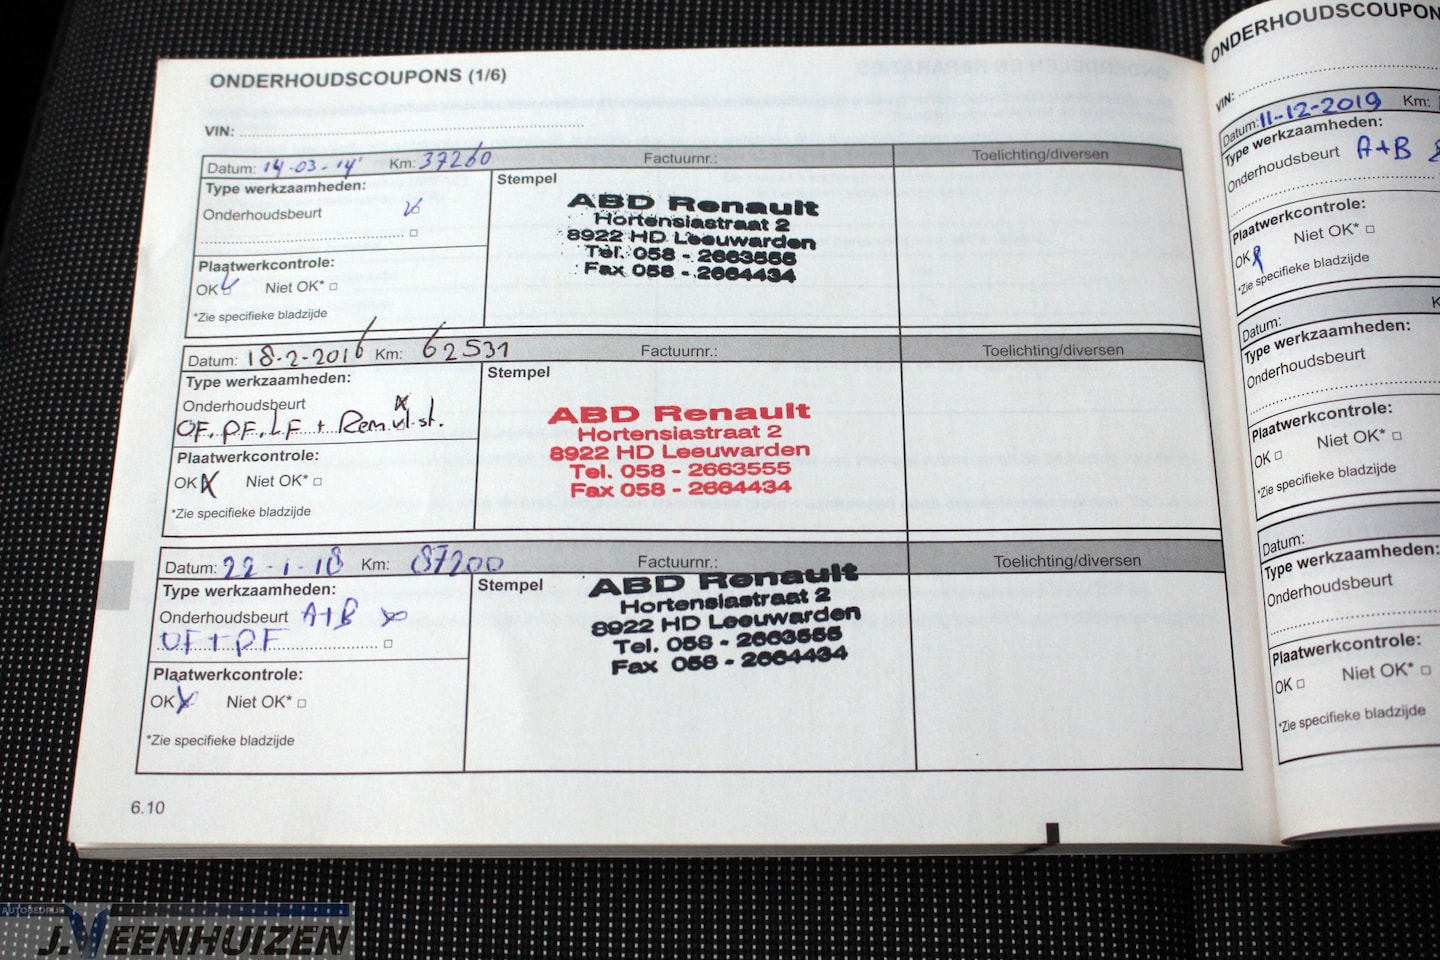 ONDERHOUDSCOUPONS (1/6)
VIN:
Datum: 14-03-'14 Km: 37260 Factuurnr.: Toelichting/diversen
Type werkzaamheden:
Onderhoudsbeurt
Plaatwerkcontrole:
OK Niet OK*
*Zie specifieke bladzijde
Stempel
ABD Renault
Hortensiastraat 2
8922 HD Leeuwarden
Tel. 058 - 2663555
Fax 058 - 2664434
Datum: 18-2-2016 Km: 62531 Factuurnr.: Toelichting/diversen
Type werkzaamheden:
Onderhoudsbeurt
OF, PF, LF + Rem.vl.st.
Plaatwerkcontrole:
OK Niet OK*
*Zie specifieke bladzijde
Stempel
ABD Renault
Hortensiastraat 2
8922 HD Leeuwarden
Tel. 058 - 2663555
Fax 058 - 2664434
Datum: 22-1-18 Km: 87200 Factuurnr.: Toelichting/diversen
Type werkzaamheden:
Onderhoudsbeurt A+B
OF + PF
Plaatwerkcontrole:
OK Niet OK*
*Zie specifieke bladzijde
Stempel
ABD Renault
Hortensiastraat 2
8922 HD Leeuwarden
Tel. 058 - 2663555
Fax 058 - 2664434
6.10
ONDERHOUDSCOUPON
VIN:
Datum: 11-12-2019 Km:
Type werkzaamheden:
Onderhoudsbeurt A+B
Plaatwerkcontrole:
OK Niet OK*
*Zie specifieke bladzijde
Datum: K
Type werkzaamheden:
Onderhoudsbeurt
Plaatwerkcontrole:
OK Niet OK*
*Zie specifieke bladzijde
Datum:
Type werkzaamheden:
Onderhoudsbeurt
Plaatwerkcontrole:
OK Niet OK*
*Zie specifieke bladzijde
AUTOBEDRIJF
J.VEENHUIZEN